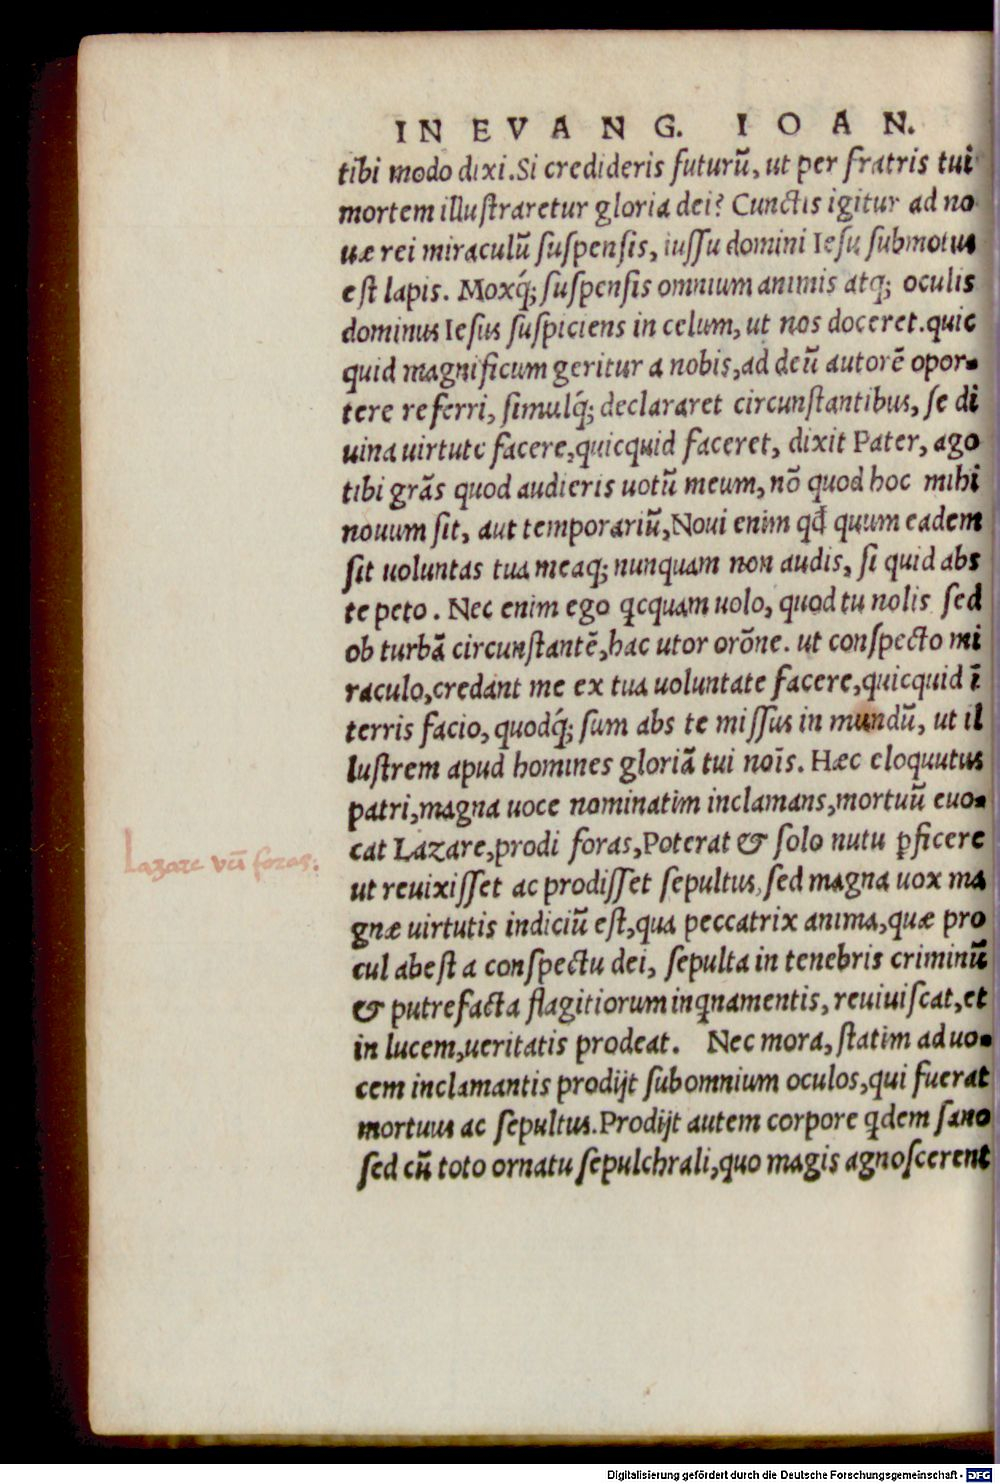 IN EVANG. IOAN.
tibi modo dixi. Si credideris futurũ, ut per fratris tui
mortem illustraretur gloria dei? Cunctis igitur ad no
uæ rei miraculũ suspensis, iussu domini Iesu submotus
est lapis. Moxq́; suspensis omnium animis atq; oculis
dominus Iesus suspiciens in celum, ut nos doceret. quic
quid magnificum geritur a nobis, ad deũ autorẽ opor-
tere referri, simulq́; declararet circunstantibus, se di
uina uirtute facere, quicquid faceret, dixit Pater, ago
tibi grãs quod audieris uotũ meum, nõ quod hoc mihi
nouum sit, aut temporariũ, Noui enim qđ quum eadem
sit uoluntas tua meaq; nunquam non audis, si quid abs
te peto. Nec enim ego qcquam uolo, quod tu nolis sed
ob turbã circunstantẽ, hac utor orõne. ut conspecto mi
raculo, credant me ex tua uoluntate facere, quicquid ĩ
terris facio, quodq́; sum abs te missus in mundũ, ut il
lustrem apud homines gloriã tui noĩs. Hæc eloquutus
patri, magna uoce nominatim inclamans, mortuũ euo-
cat Lazare, prodi foras, Poterat & solo nutu ꝑficere
ut reuixisset ac prodisset sepultus, sed magna uox ma
gnæ uirtutis indiciũ est, qua peccatrix anima, quæ pro
cul abest a conspectu dei, sepulta in tenebris criminũ
& putrefacta flagitiorum inqnamentis, reuiuiscat, et
in lucem, ueritatis prodeat. Nec mora, statim ad uo-
cem inclamantis prodijt sub omnium oculos, qui fuerat
mortuus ac sepultus. Prodijt autem corpore qdem sano
sed cũ toto ornatu sepulchrali, quo magis agnoscerent
Lazare veni foras.
Digitalisierung gefördert durch die Deutsche Forschungsgemeinschaft - DFG